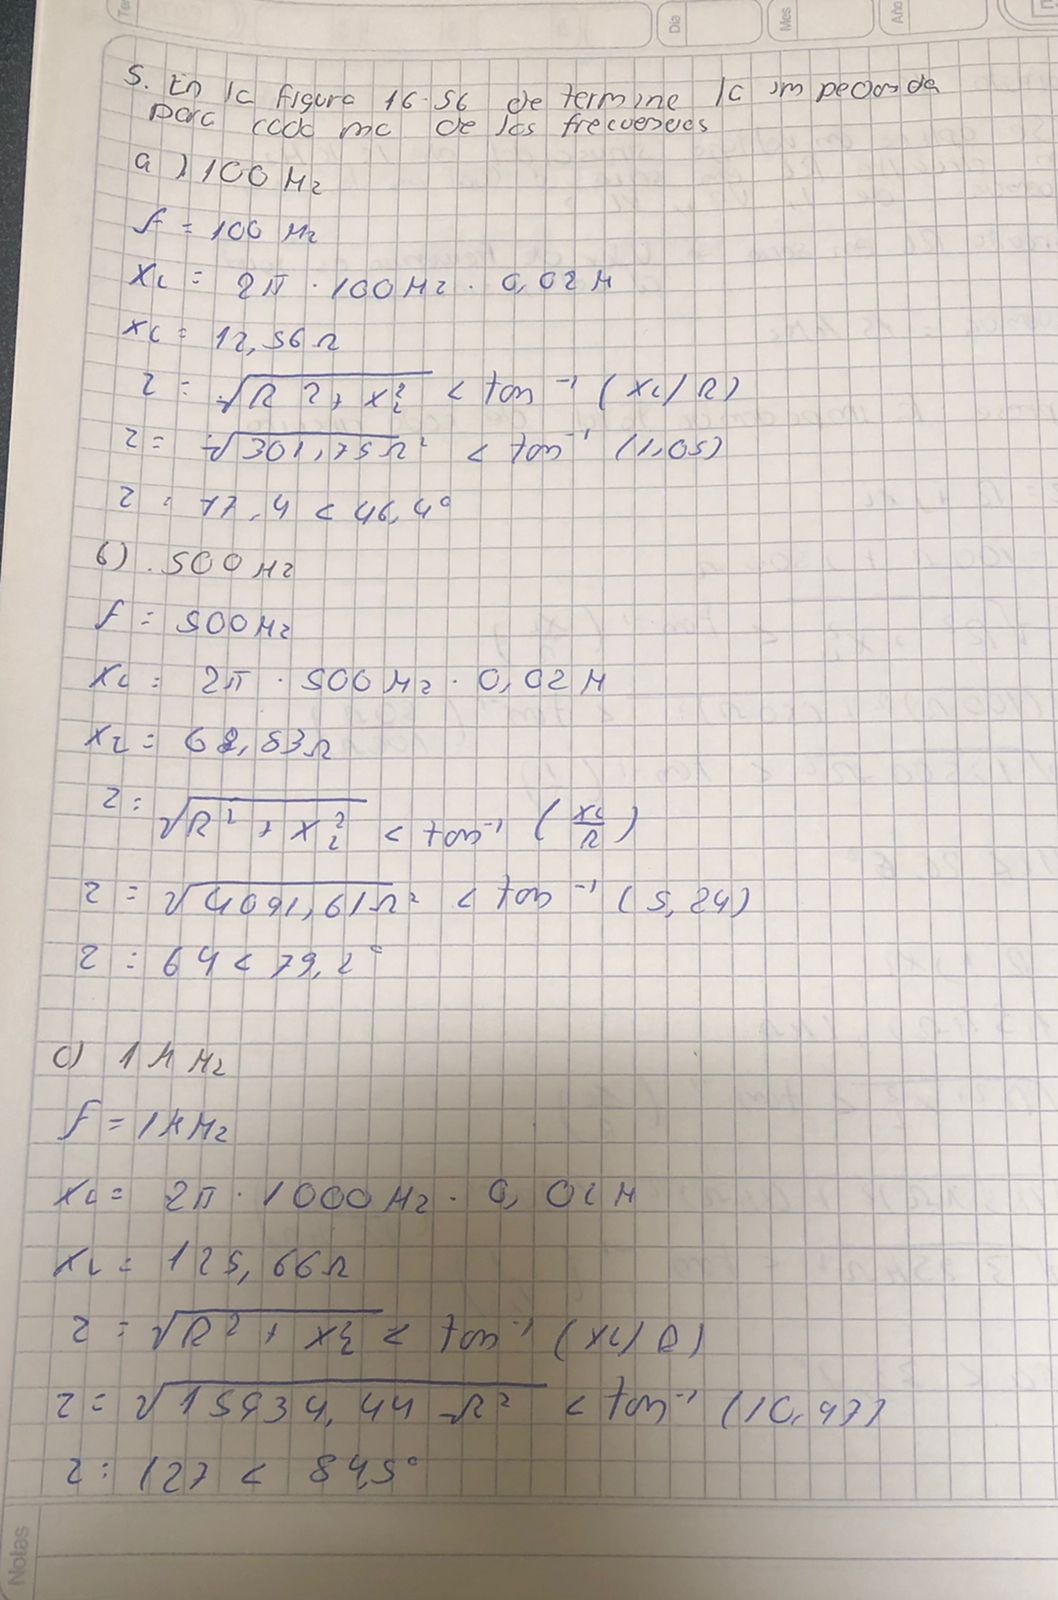 Día
Mes
Año
5. En la figura 16-56 determine la impedancia
para cada una de las frecuencias
a) 100 Hz
f = 100 Hz
XL = 2π · 100Hz · 0,02H
XL = 12,56Ω
Z = √R2 + XL2 < tan-1 (XL/R)
Z = √301,75Ω2 < tan-1 (1,05)
Z = 17,4 < 46,4°
b) 500Hz
f = 500Hz
XL = 2π · 500Hz · 0,02H
XL = 62,83Ω
Z = √R2 + XL2 < tan-1 (XL/R)
Z = √4091,61Ω2 < tan-1 (5,24)
Z = 64 < 79,2°
c) 1KHz
f = 1KHz
XL = 2π · 1000Hz · 0,02H
XL = 125,66Ω
Z = √R2 + XL2 < tan-1 (XL/R)
Z = √15934,44Ω2 < tan-1 (10,47)
Z = 127 < 84,5°
Notas